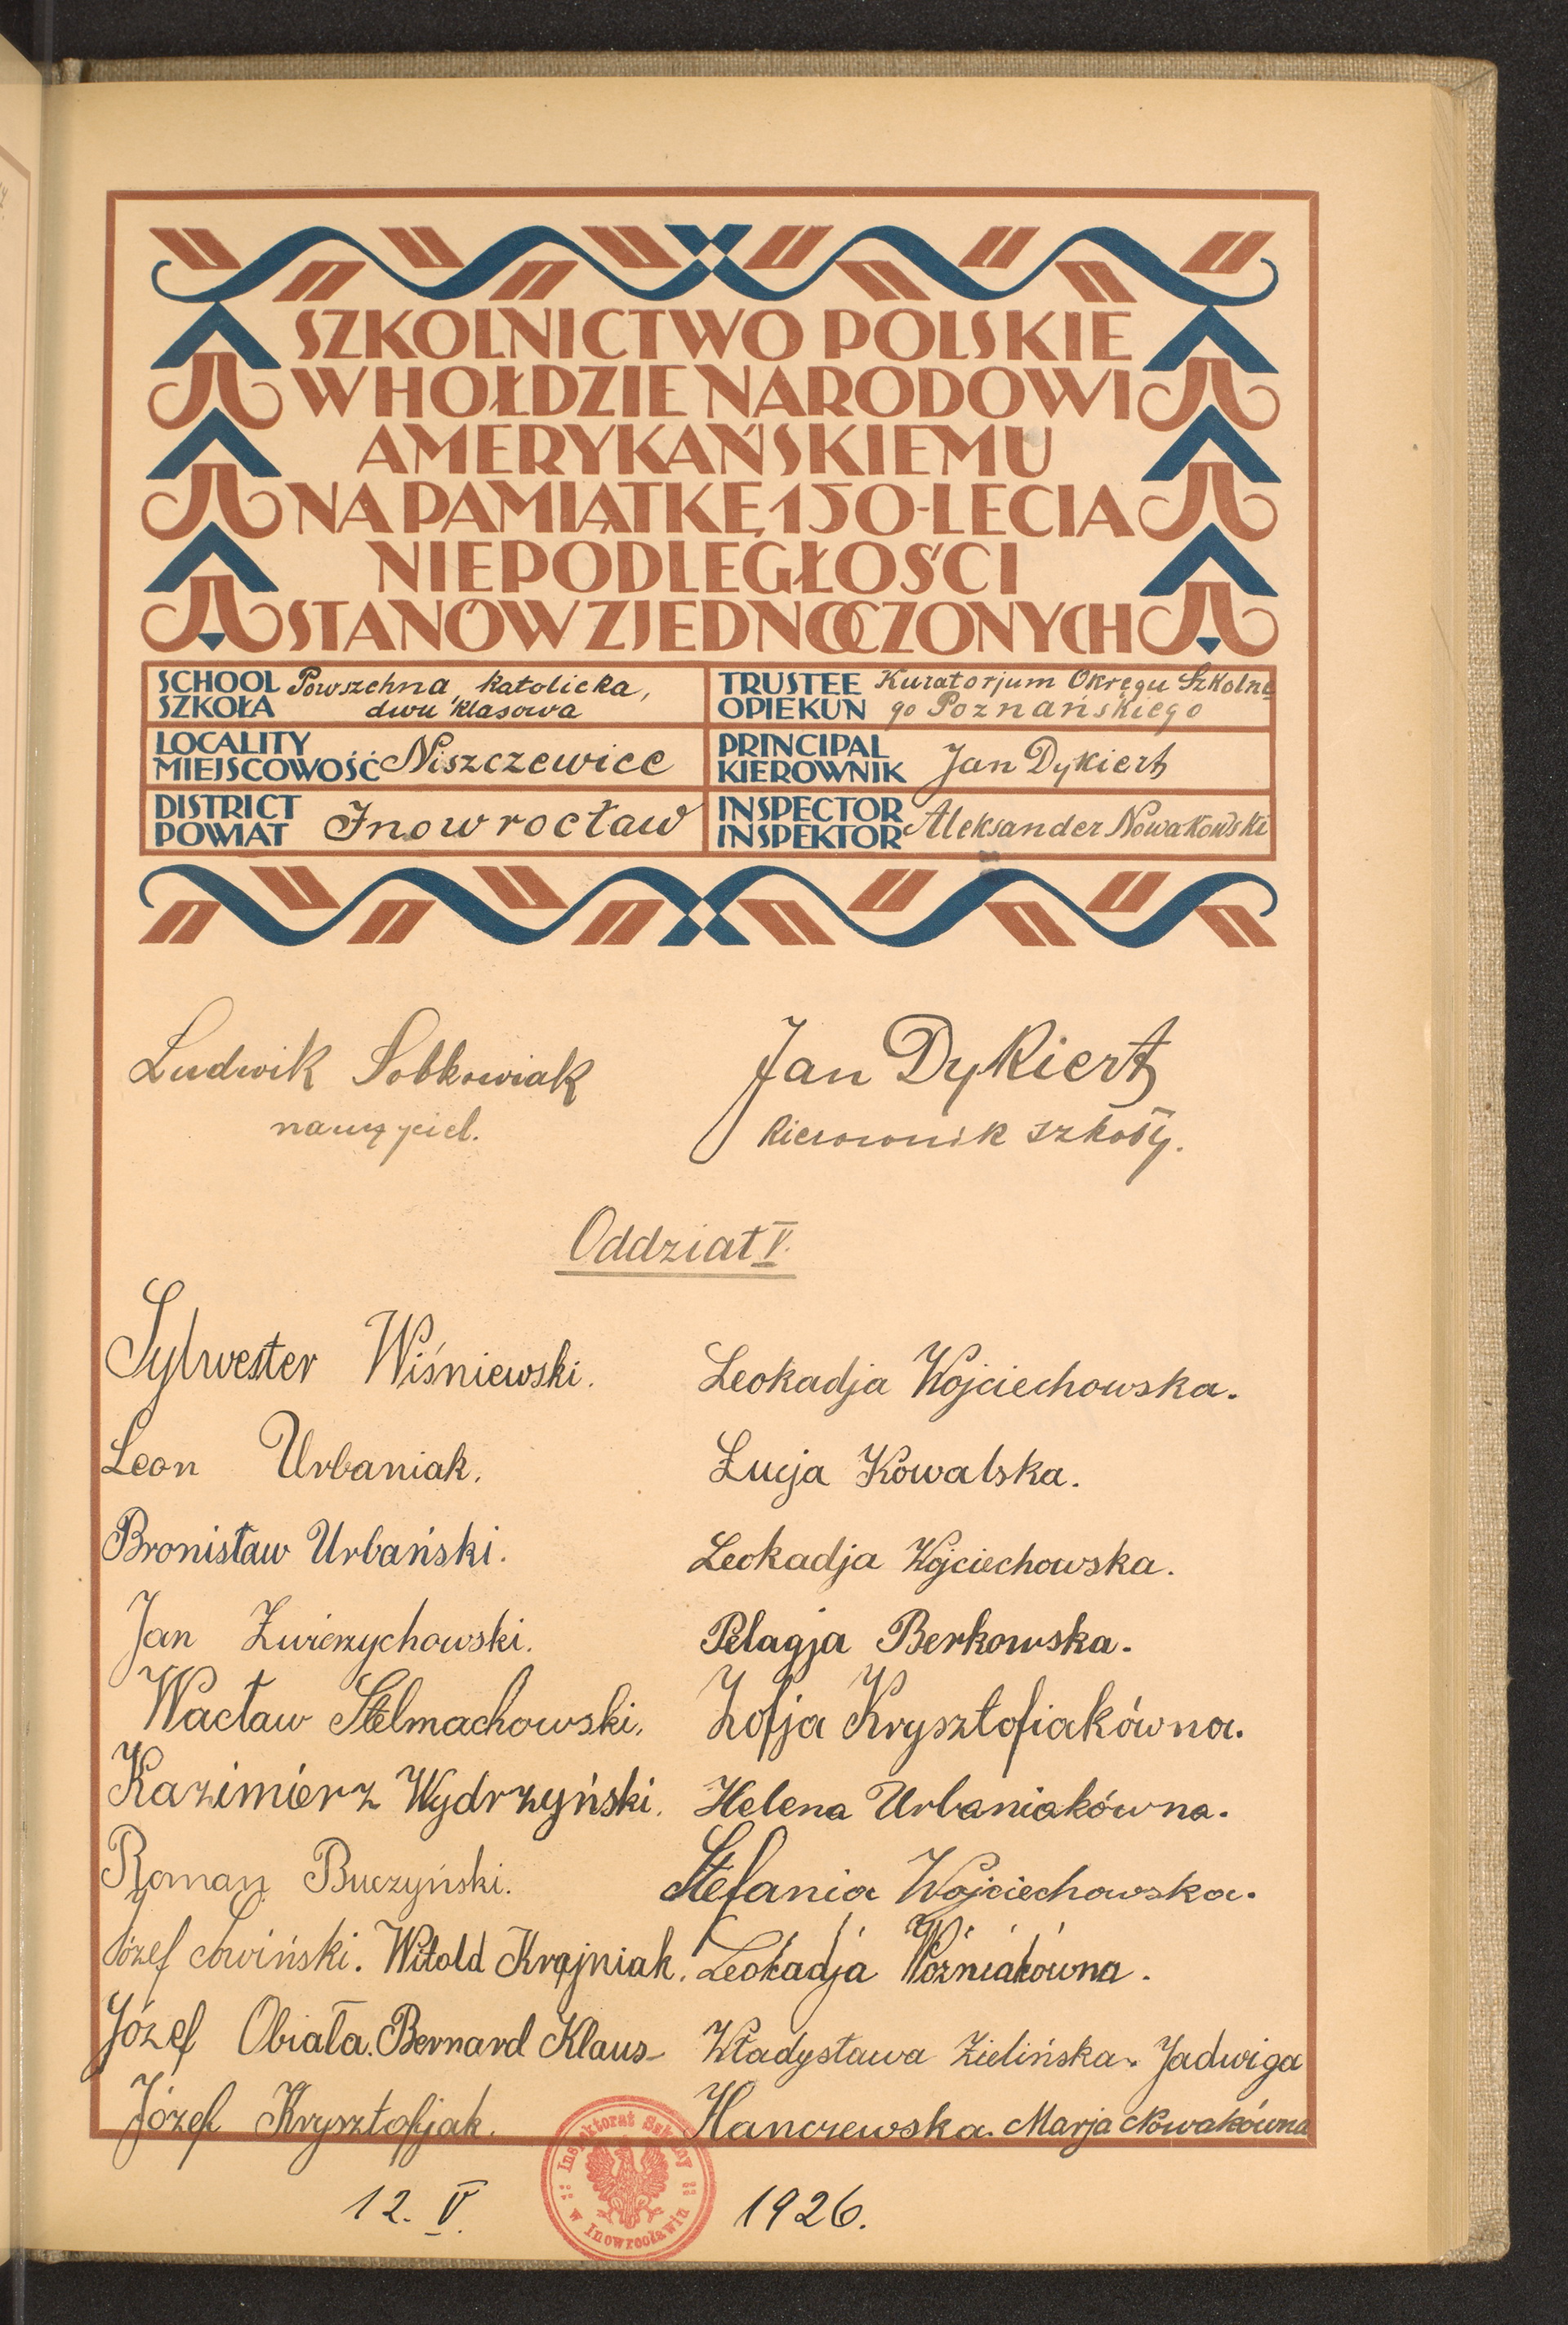 SZKOLNICTWO POLSKIE
W HOŁDZIE NARODOWI
AMERYKAŃSKIEMU
NA PAMIĄTKĘ 150-LECIA
NIEPODLEGŁOŚCI
STANÓW ZJEDNOCZONYCH
SCHOOL SZKOŁA Powszechna, katolicka,
dwu klasowa
TRUSTEE OPIEKUN Kuratorjum Okręgu Szkolne
go Poznańskiego
LOCALITY MIEJSCOWOŚĆ Niszczewice
PRINCIPAL KIEROWNIK Jan Dykiert
DISTRICT POWIAT Inowrocław
INSPECTOR INSPEKTOR Aleksander Nowakowski
Ludwik Sobkowiak
nauczyciel.
Jan Dykiert
kierownik szkoły.
Oddział V.
Sylwester Wiśniewski.
Leon Urbaniak.
Bronisław Urbański.
Jan Zwierzychowski.
Wacław Stelmachowski.
Kazimierz Wydrzyński.
Roman Buczyński.
Józef Łowiński. Witold Krajniak.
Józef Obiała. Bernard Klaus
Józef Krysztofjak.
Leokadja Wojciechowska.
Łucja Kowalska.
Leokadja Wojciechowska.
Pelagja Berkowska.
Zofja Krysztofiakówna.
Helena Urbaniakówna.
Stefania Wojciechowska.
Leokadja Woźniakówna.
Władysława Zielińska. Jadwiga
Hanczewska. Marja Nowakówna
12. V. 1926.
Inspektorat Szkolny
w Inowrocławiu